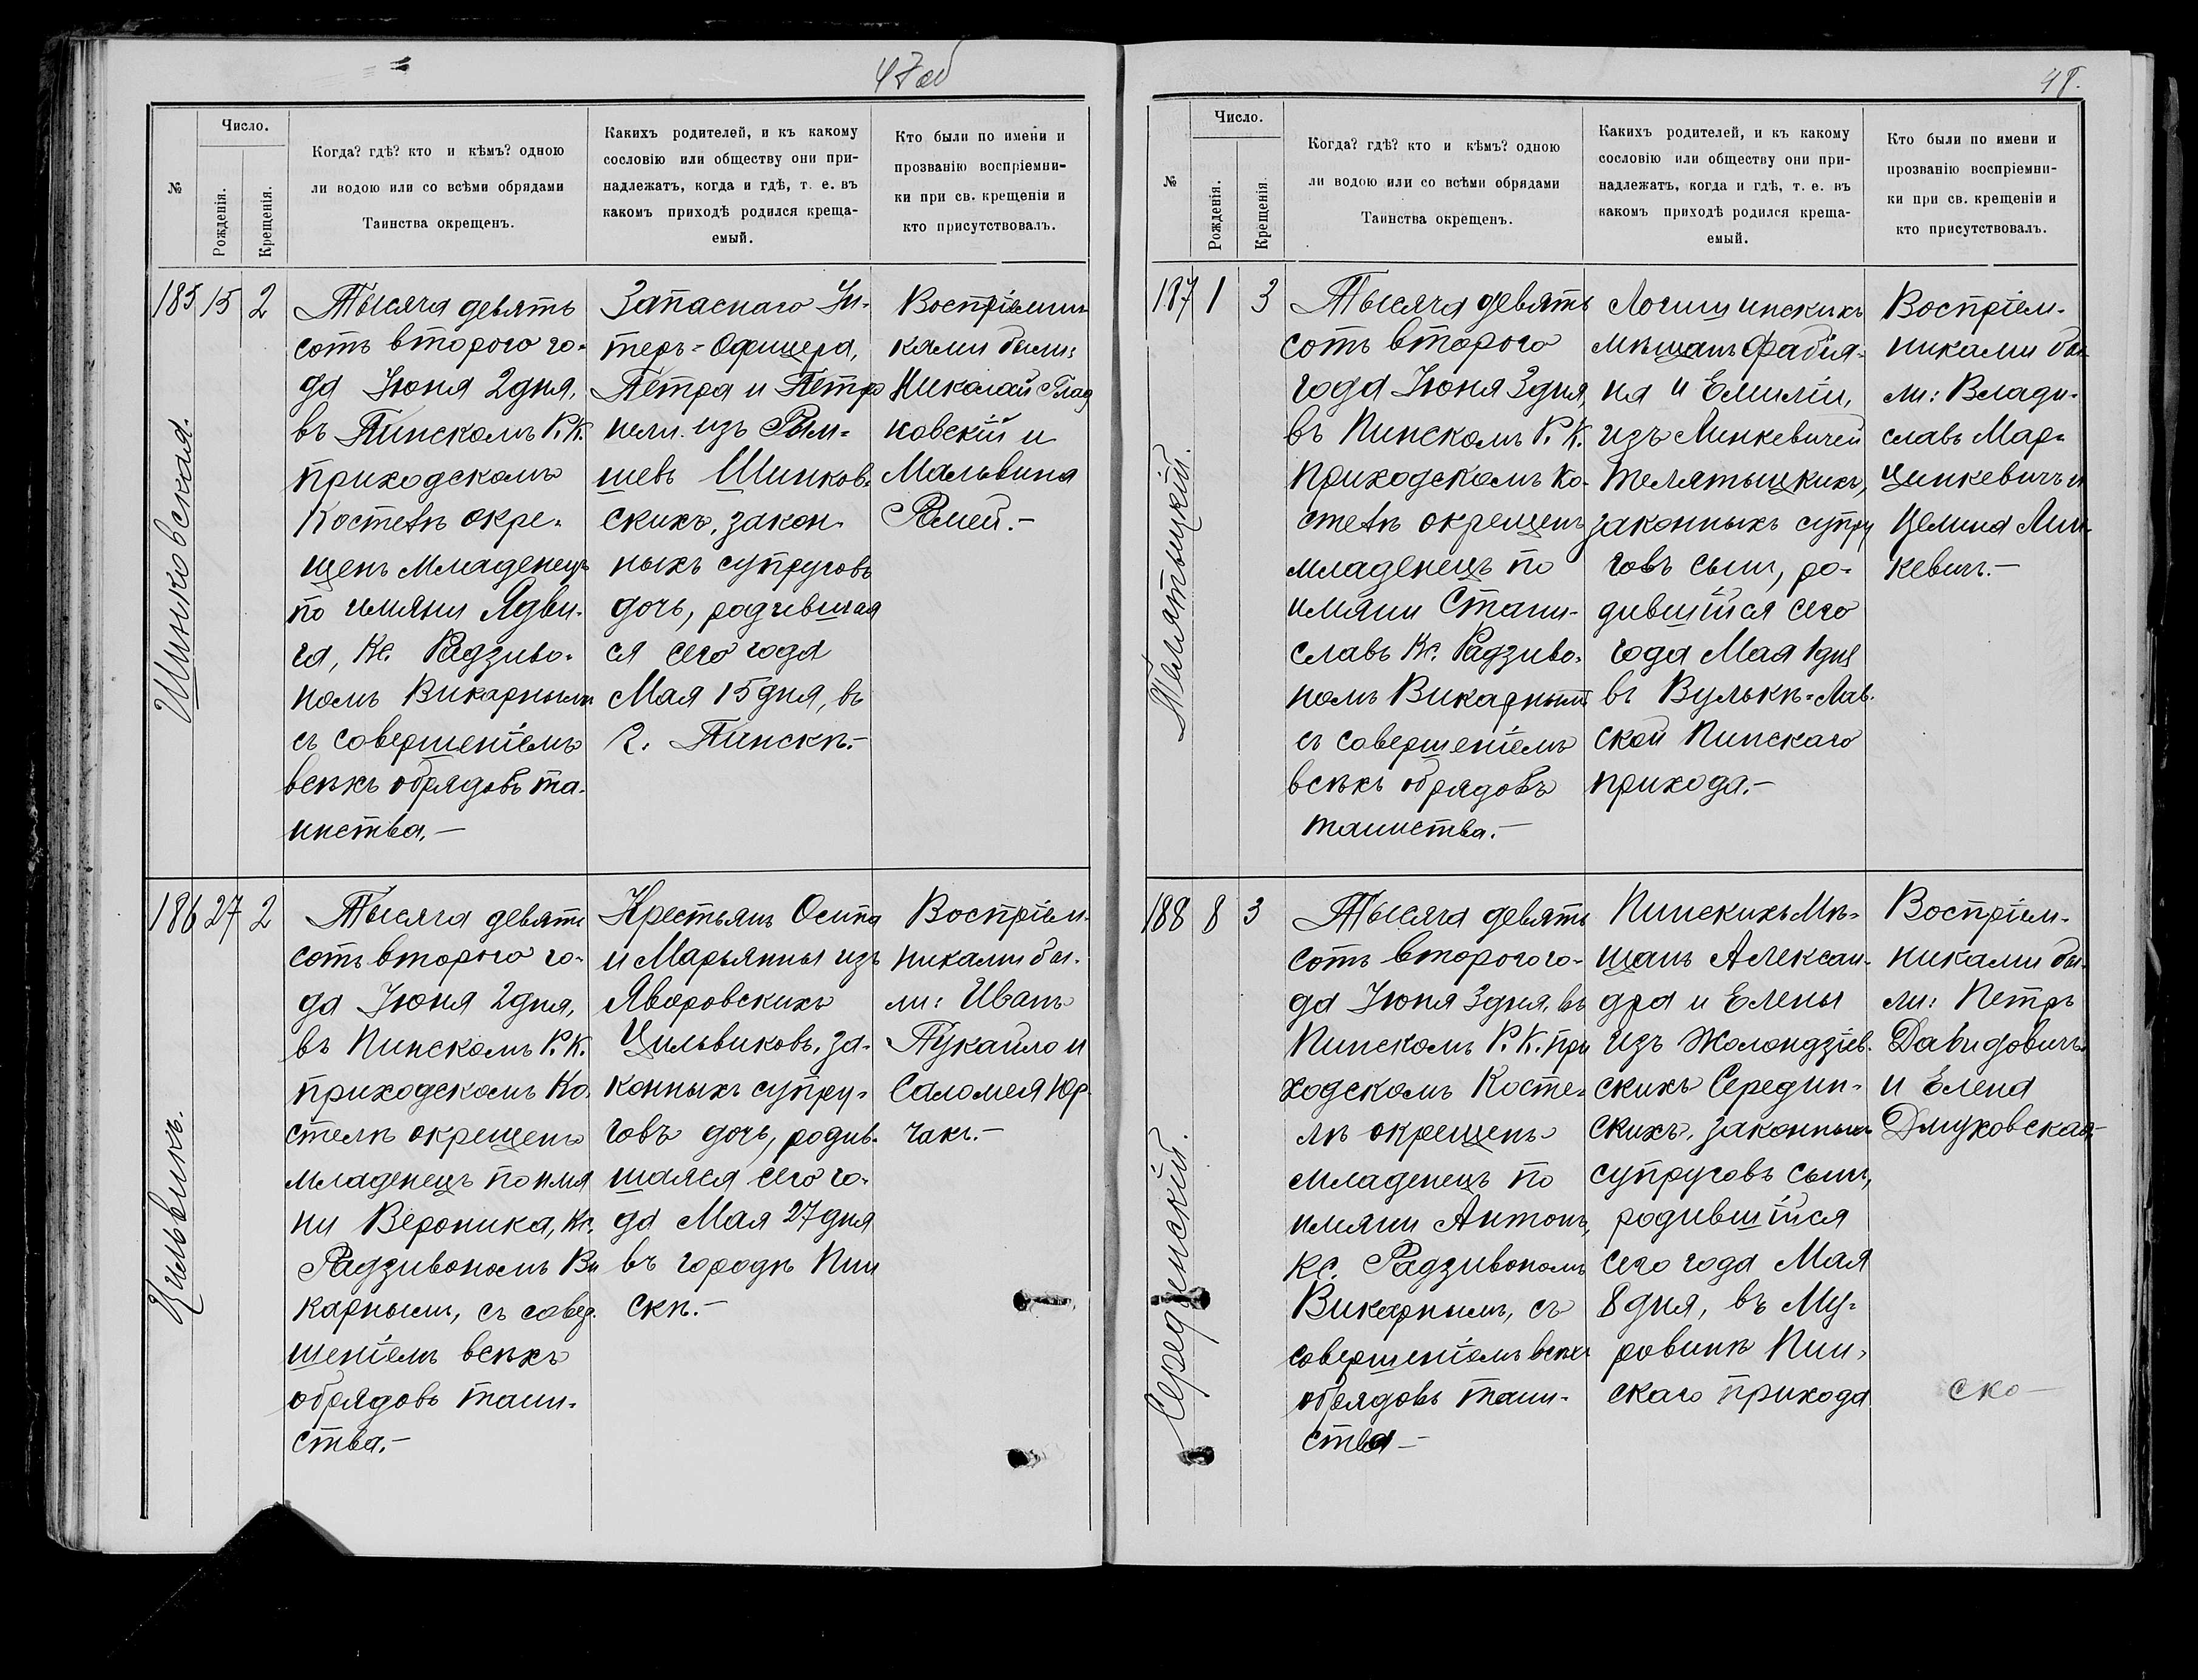 47 об
№
Число.
Рожденія.
Крещенія.
Когда? гдѣ? кто и кѣмъ? одною
ли водою или со всѣми обрядами
Таинства окрещенъ.
Какихъ родителей, и къ какому
сословію или обществу они при-
надлежатъ, когда и гдѣ, т. е. въ
какомъ приходѣ родился креща-
емый.
Кто были по имени и
прозванію воспріемни-
ки при св. крещеніи и
кто присутствовалъ.
185 15 2
Шинковская.
Тысяча девять
сотъ второго го-
да Іюня 2 дня,
въ Пинскомъ Р. К.
приходскомъ
Костелѣ окре-
щенъ младенецъ
по имяни Ядви-
га, Кс. Радзиво-
номъ Викарнымъ
съ совершеніемъ
всѣхъ обрядовъ та-
инства.—
Запаснаго Ун-
теръ-Офицера,
Петра и Петро
нели из
Шинков-
скихъ, закон-
ныхъ супруговъ
дочь, родившая
ся сего года
Мая 15 дня, въ
г. Пинскѣ.—
Воспріемни
ками были:
Николай
ковскій и
Мальвина
Ромей.—
186 27 2
Цильвикъ.
Тысяча девять
сотъ второго го-
да Іюня 2 дня,
въ Пинскомъ Р. К.
приходскомъ Ко-
стелѣ окрещенъ
младенецъ по имя
ни Вероника, Кс.
Радзивономъ Ви
карнымъ, съ совер-
шеніемъ всѣхъ
обрядовъ таин-
ства.—
Крестьянъ Осипа
и Марьянны изъ
Яворовскихъ
Цильвиковъ, за-
конныхъ супру-
говъ дочь, родив-
шаяся сего го-
да Мая 27 дня
въ городѣ Пин
скѣ.—
Воспріем-
никами бы-
ли: Иванъ
Пукайло и
Саломея Юр-
чакъ.—
48.
№
Число.
Рожденія.
Крещенія.
Когда? гдѣ? кто и кѣмъ? одною
ли водою или со всѣми обрядами
Таинства окрещенъ.
Какихъ родителей, и къ какому
сословію или обществу они при-
надлежатъ, когда и гдѣ, т. е. въ
какомъ приходѣ родился креща-
емый.
Кто были по имени и
прозванію воспріемни-
ки при св. крещеніи и
кто присутствовалъ.
187 1 3
Телятыцкій.
Тысяча девять
сотъ второго
года Іюня 3 дня,
въ Пинскомъ Р. К.
приходскомъ Ко-
стелѣ окрещенъ
младенецъ по
имяни Стани-
славъ Кс. Радзиво-
номъ Викарнымъ
съ совершеніемъ
всѣхъ обрядовъ
таинства.—
Логишинскихъ
мѣщанъ Фабія-
на и Емиліи,
изъ Линкевичей
Телятыцкихъ,
законныхъ супру
говъ сынъ, ро-
дившійся сего
года Мая 1 дня
въ Вулькѣ-Лав-
ской Пинскаго
прихода.—
Воспріем-
никами бы-
ли: Влади-
славъ Мар-
цинкевичъ и
Целина Лин-
кевичъ.—
188 8 3
Серединскій.
Тысяча девять
сотъ второго го-
да Іюня 3 дня, въ
Пинскомъ Р. К. при
ходскомъ Косте-
лѣ окрещенъ
младенецъ по
имяни Антонъ,
Кс. Радзивономъ
Викарнымъ, съ
совершеніемъ всѣхъ
обрядовъ таин-
ства—
Пинскихъ Мѣ-
щанъ Алексан-
дра и Елены
изъ Жолондзіев-
скихъ Середин-
скихъ, законныхъ
супруговъ сынъ,
родившійся
сего года Мая
8 дня, въ Му-
ровинѣ Пин-
скаго прихода
Воспріем-
никами бы-
ли: Петръ
Давидовичъ
и Елена
Длуховская—
ско—